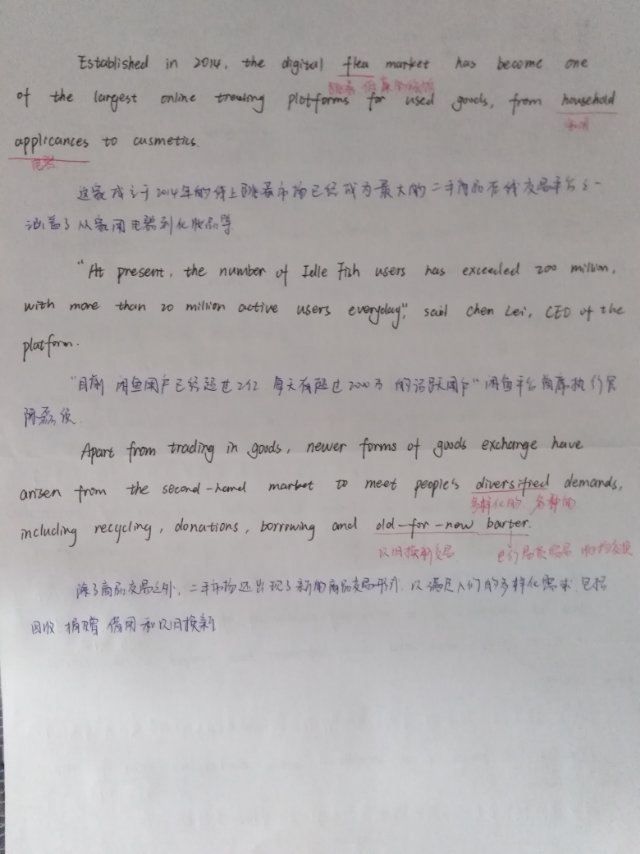 Established in 2014, the digital flea market has become one
跳蚤
of the largest online trewing platforms for used goods, from household
家用
applicances to cusmetics.
电器
这家成立于2014年的线上跳蚤市场已经成为最大的二手商品在线交易平台之一
涵盖了从家用电器到化妆品等
"At present, the number of Idle Fish users has exceeded 200 million,
with more than 20 million active users everyday", said Chen Lei, CEO of the
platform.
"目前 闲鱼用户已经超过2亿 每天有超过2000万的活跃用户" 闲鱼平台首席执行官
陈磊说
Apart from trading in goods, newer forms of goods exchange have
arisen from the second-hand market to meet people's diversified demands,
多样化的 多种的
including recycling, donations, borrowing and old-for-new barter.
以旧换新交易
除了商品交易之外, 二手市场还出现了新的商品交易形式, 以满足人们的多样化需求 包括
回收 捐赠 借用和以旧换新